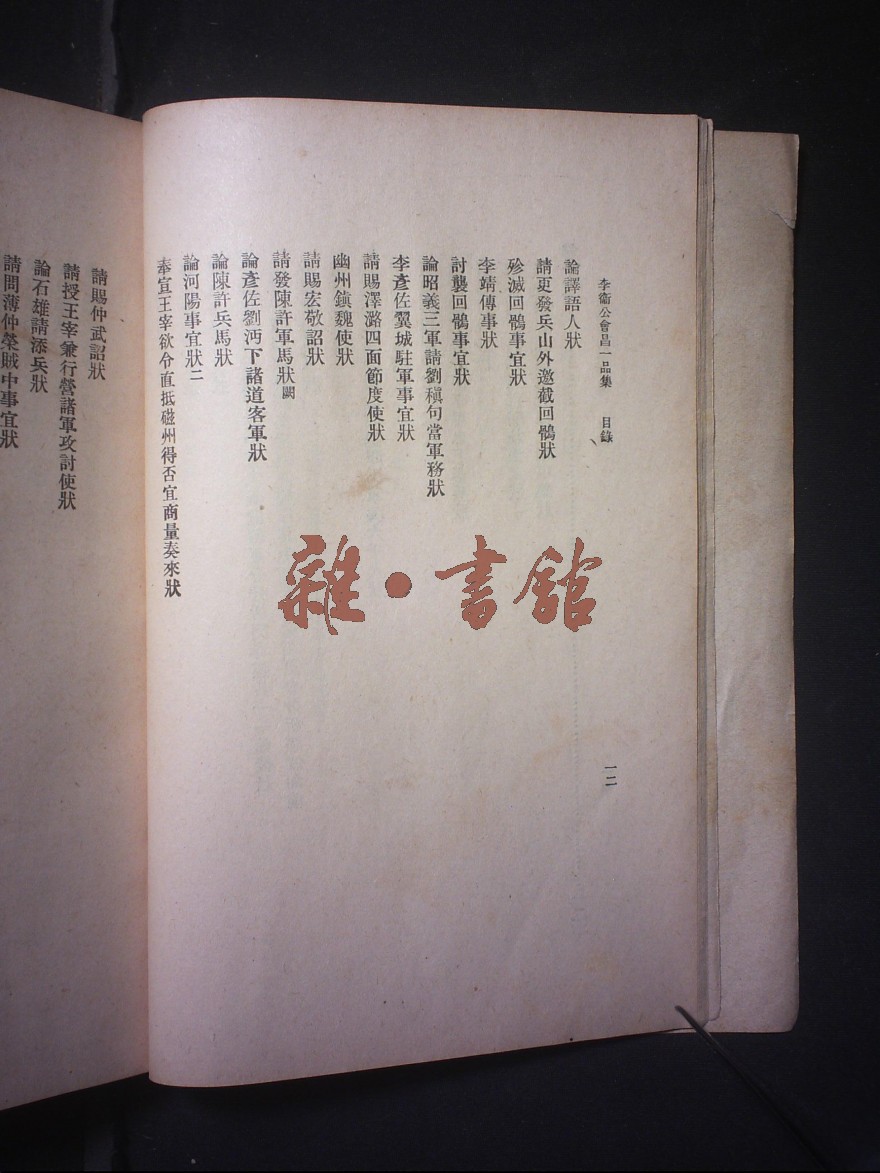 李衞公會昌一品集　目錄
一二
論譯語人狀
請更發兵山外邀截回鶻狀
殄滅回鶻事宜狀
李靖傳事狀
討襲回鶻事宜狀
論昭義三軍請劉稹句當軍務狀
李彥佐翼城駐軍事宜狀
請賜澤潞四面節度使狀
幽州鎮魏使狀
請賜宏敬詔狀
請發陳許軍馬狀闕
論彥佐劉沔下諸道客軍狀
論陳許兵馬狀
論河陽事宜狀二
奉宣王宰欲令直抵磁州得否宜商量奏來狀
請賜仲武詔狀
請授王宰兼行營諸軍攻討使狀
論石雄請添兵狀
請問薄仲榮賊中事宜狀
雜·書館